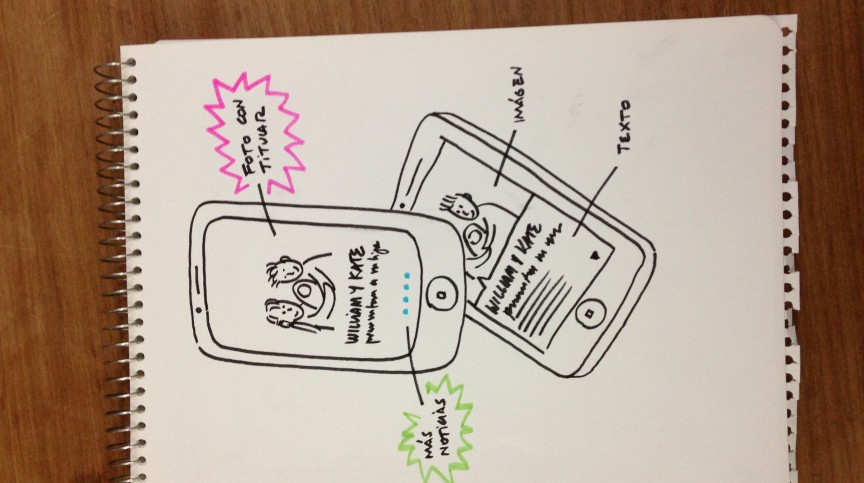 FOTO CON
TITULAR
WILLIAM Y KATE
presentan a su hijo
MÁS
NOTICIAS
IMÁGEN
TEXTO
WILLIAM Y KATE
presentan